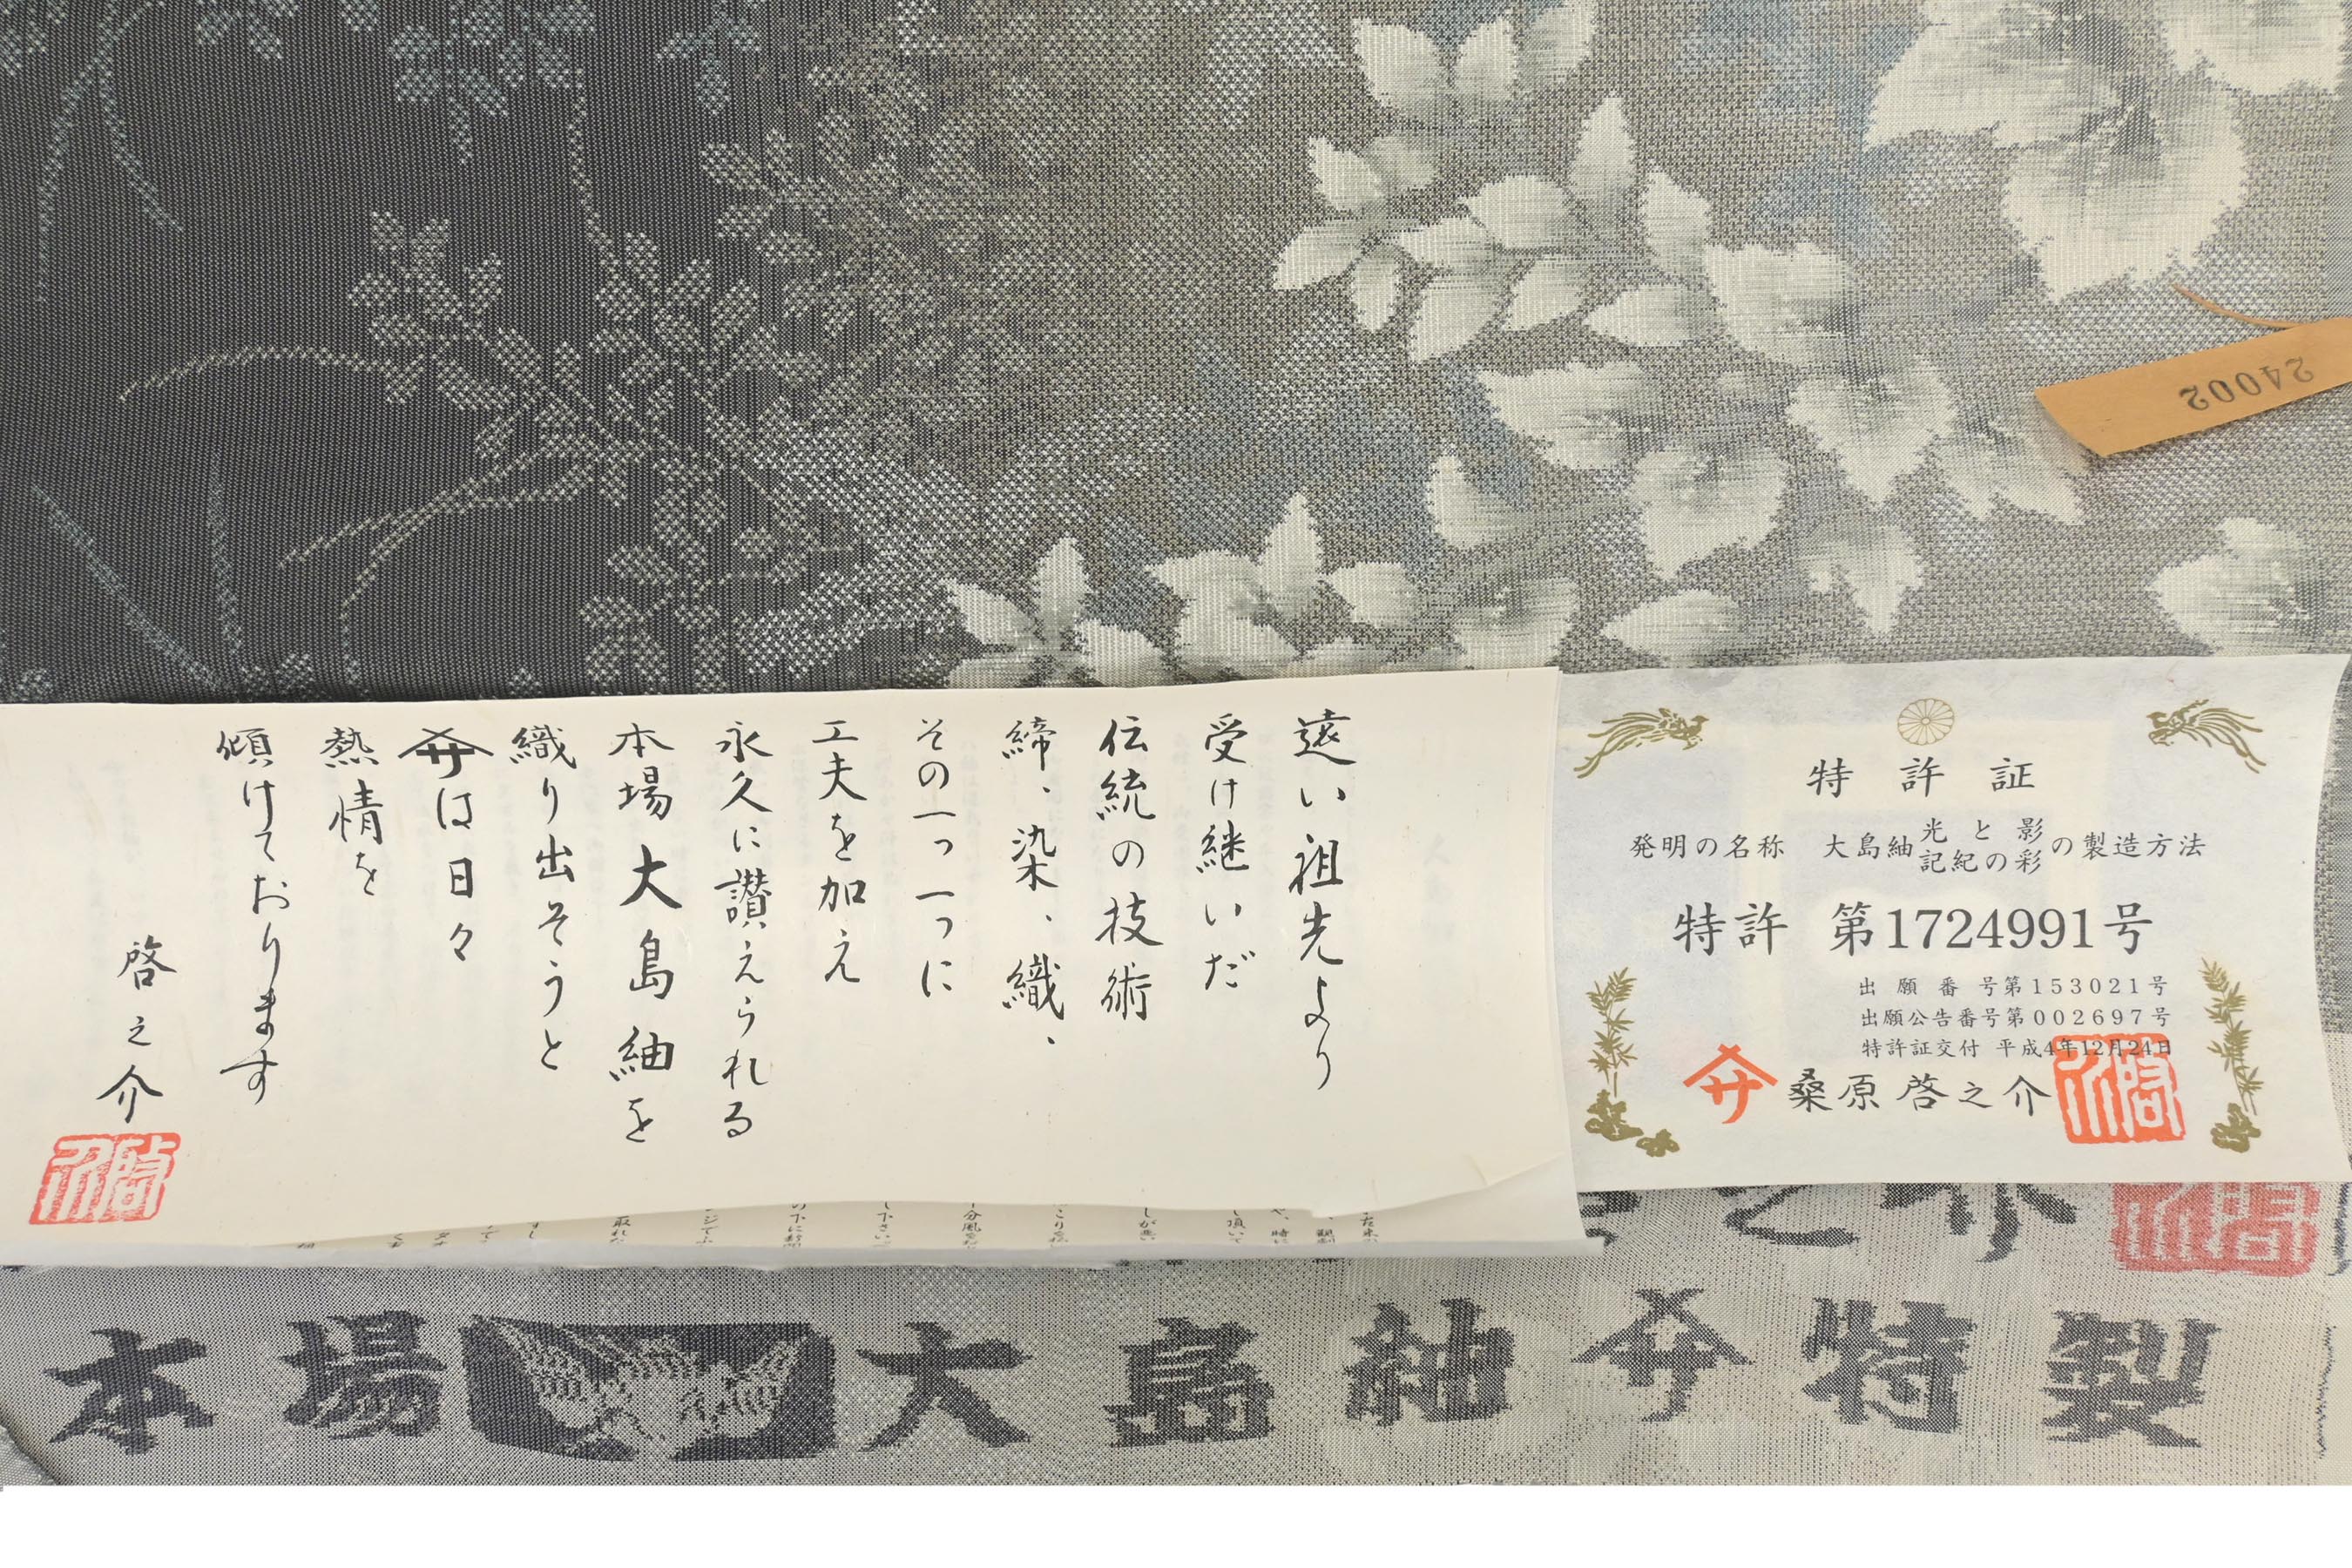 24002
遠い祖先より
受け継いだ
伝統の技術
締、染、織、
その一つ一つに
工夫を加え
永久に讃えられる
本場大島紬を
織り出そうと
は日々
熱情を
傾けております
啓之介
特許証
発明の名称 大島紬 光と影 記紀の彩 の製造方法
特許 第1724991号
出願番号第153021号
出願公告番号第002697号
特許証交付 平成4年12月24日
桑原啓之介
之介
本場 大島紬 特製